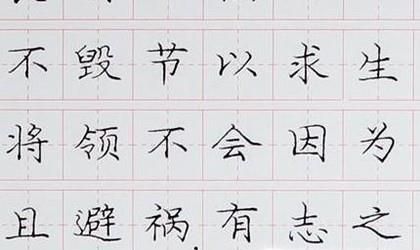 不毁节以求生
将领不会因为
且避祸有志之